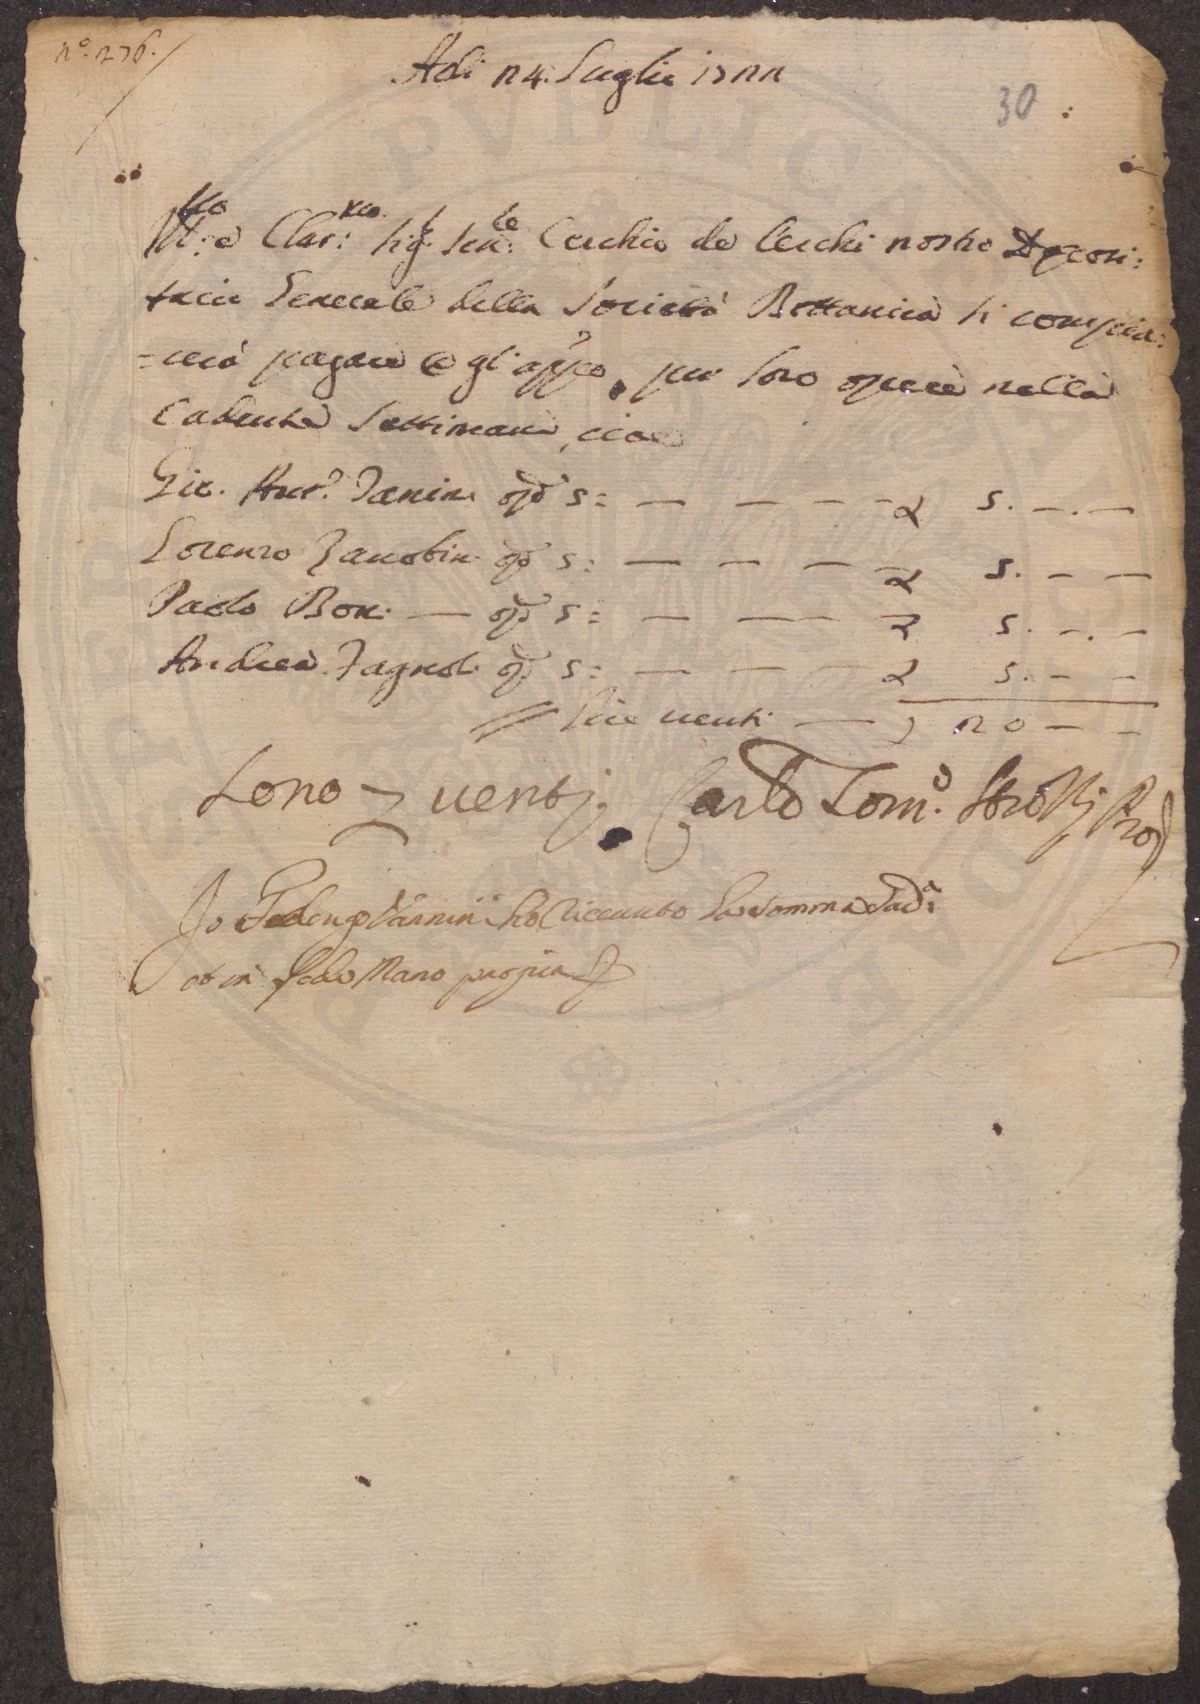 n.º 276.
Adi 24. Luglio 1722
30
Ill.mo e Clar:mo Sig.r Sen:le Cerchio de Cerchi nostro Deposi:
tario Generale della Società Bottanica si compia:
=cerà pagare a gl'app.o per loro opere nella
Cadente Settimana, cioè
Gio. Ant.o Vanini op.e 5: — — — — £ 5. —.—
Lorenzo Zanobini op.e 5: — — — — £ 5. — —
Paolo Boni — op.e 5: — — — £ 5. —.—
Andrea Fagnoli op.e 5: — — £ 5. — —
Lire venti — £ 20 — —
Sono £ venti. Carlo Tom.o Strozzi Pro
Io Vannini ho Riceuuto la Somma Sud.a
et in fede Mano propria
PVBLICA